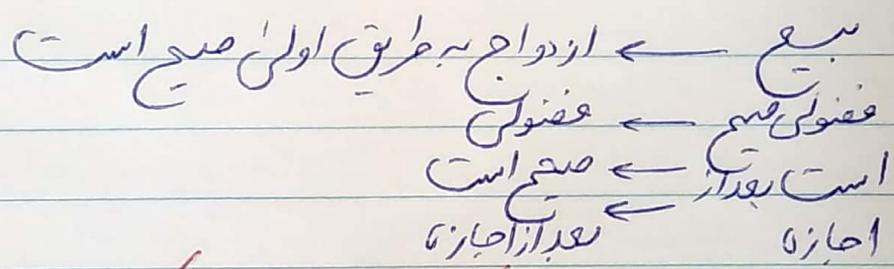 بیع ← ازدواج به طریق اولیٰ صحیح است
فضولی صحیح ← فضولی
است بعد از ← صحیح است
اجازه ← بعد از اجازه